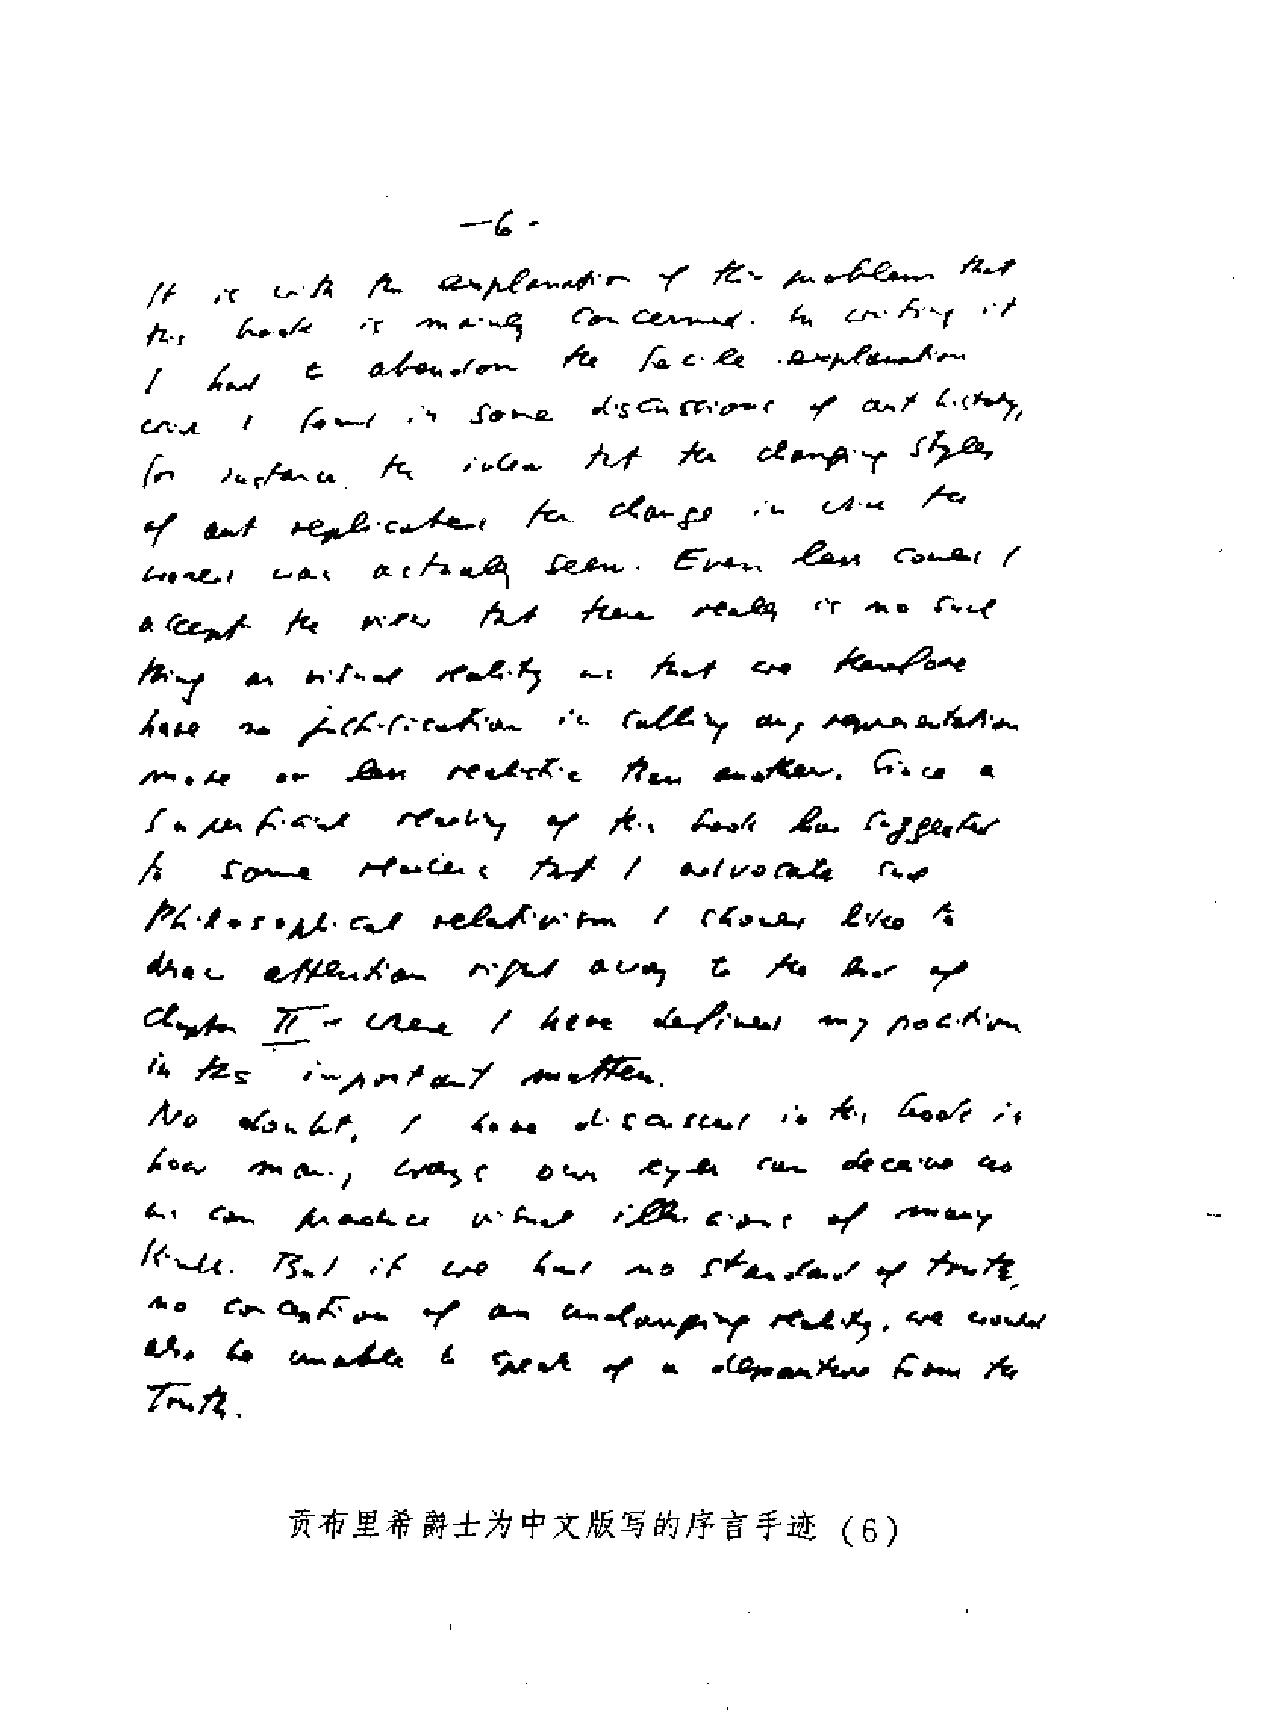 -6-
It is with the explanation of this problem that
this book is mainly concerned. In writing it
I had to abandon the facile explanation
which I found in some discussions of art history,
for instance the idea that the changing styles
of art replicated the change in which the
world was actually seen. Even less could I
accept the view that there really is no such
thing as visual reality and that we therefore
have no justification in calling any representation
more or less realistic than another. Since a
superficial reading of this book has suggested
to some readers that I advocate such
Philosophical relativism I should like to
draw attention right away to the end of
Chapter II - where I have defined my position
in this important matter.
No doubt, I have discussed in this book in
how many ways our eyes can deceive us
can produce visual illusions of many
kinds. But if we had no standard of truth,
no conception of an unchanging reality, we would
also be unable to speak of a departure from the
Truth.
贡布里希爵士为中文版写的序言手迹 (6)